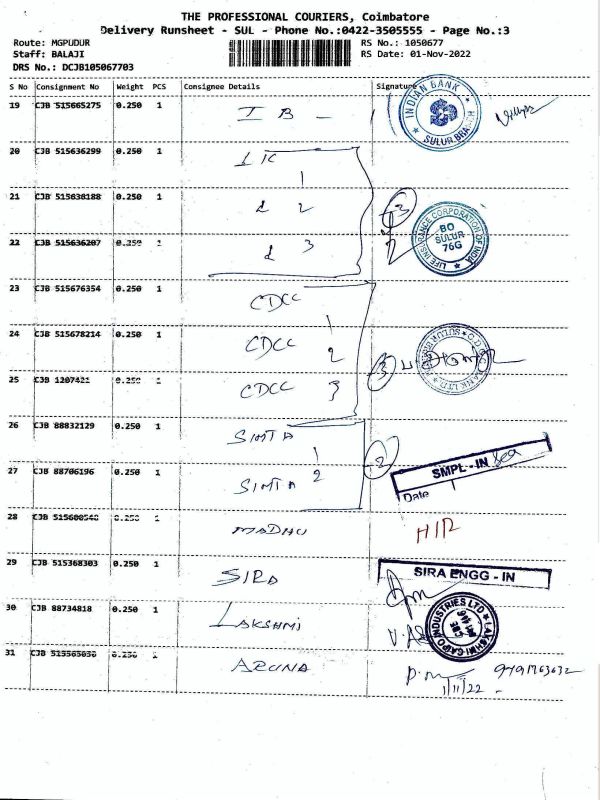 THE PROFESSIONAL COURIERS, Coimbatore
Delivery Runsheet - SUL - Phone No.:0422-3505555 - Page No.:3
Route: MGPUDUR
Staff: BALAJI
DRS No.: DCJB105067703
RS No.: 1050677
RS Date: 01-Nov-2022
S No Consignment No Weight PCS Consignee Details Signature
19 CJB 515665275 0.250 1 I B -
INDIAN BANK
SULUR BRANCH
20 CJB 515636299 0.250 1 LIC 1
21 CJB 515636188 0.250 1 2
3
22 CJB 515636207 0.250 1 3
LIFE INSURANCE CORPORATION OF INDIA
BO
SULUR
76G
23 CJB 515676354 0.250 1 CDCC 1
24 CJB 515678214 0.250 1 CDCC 2
3
25 CJB 1207421 0.250 1 CDCC 3
26 CJB 88832129 0.250 1 SIMTA 1
2
27 CJB 88706196 0.250 1 SIMTA 2
SMPL - IN
Date
28 0.250 1 MADHU
29 CJB 515368303 0.250 1 SIRA
SIRA ENGG - IN
30 CJB 88734818 0.250 1 LAKSHMI
31 0.250 1 ARUNA
1/11/22 -